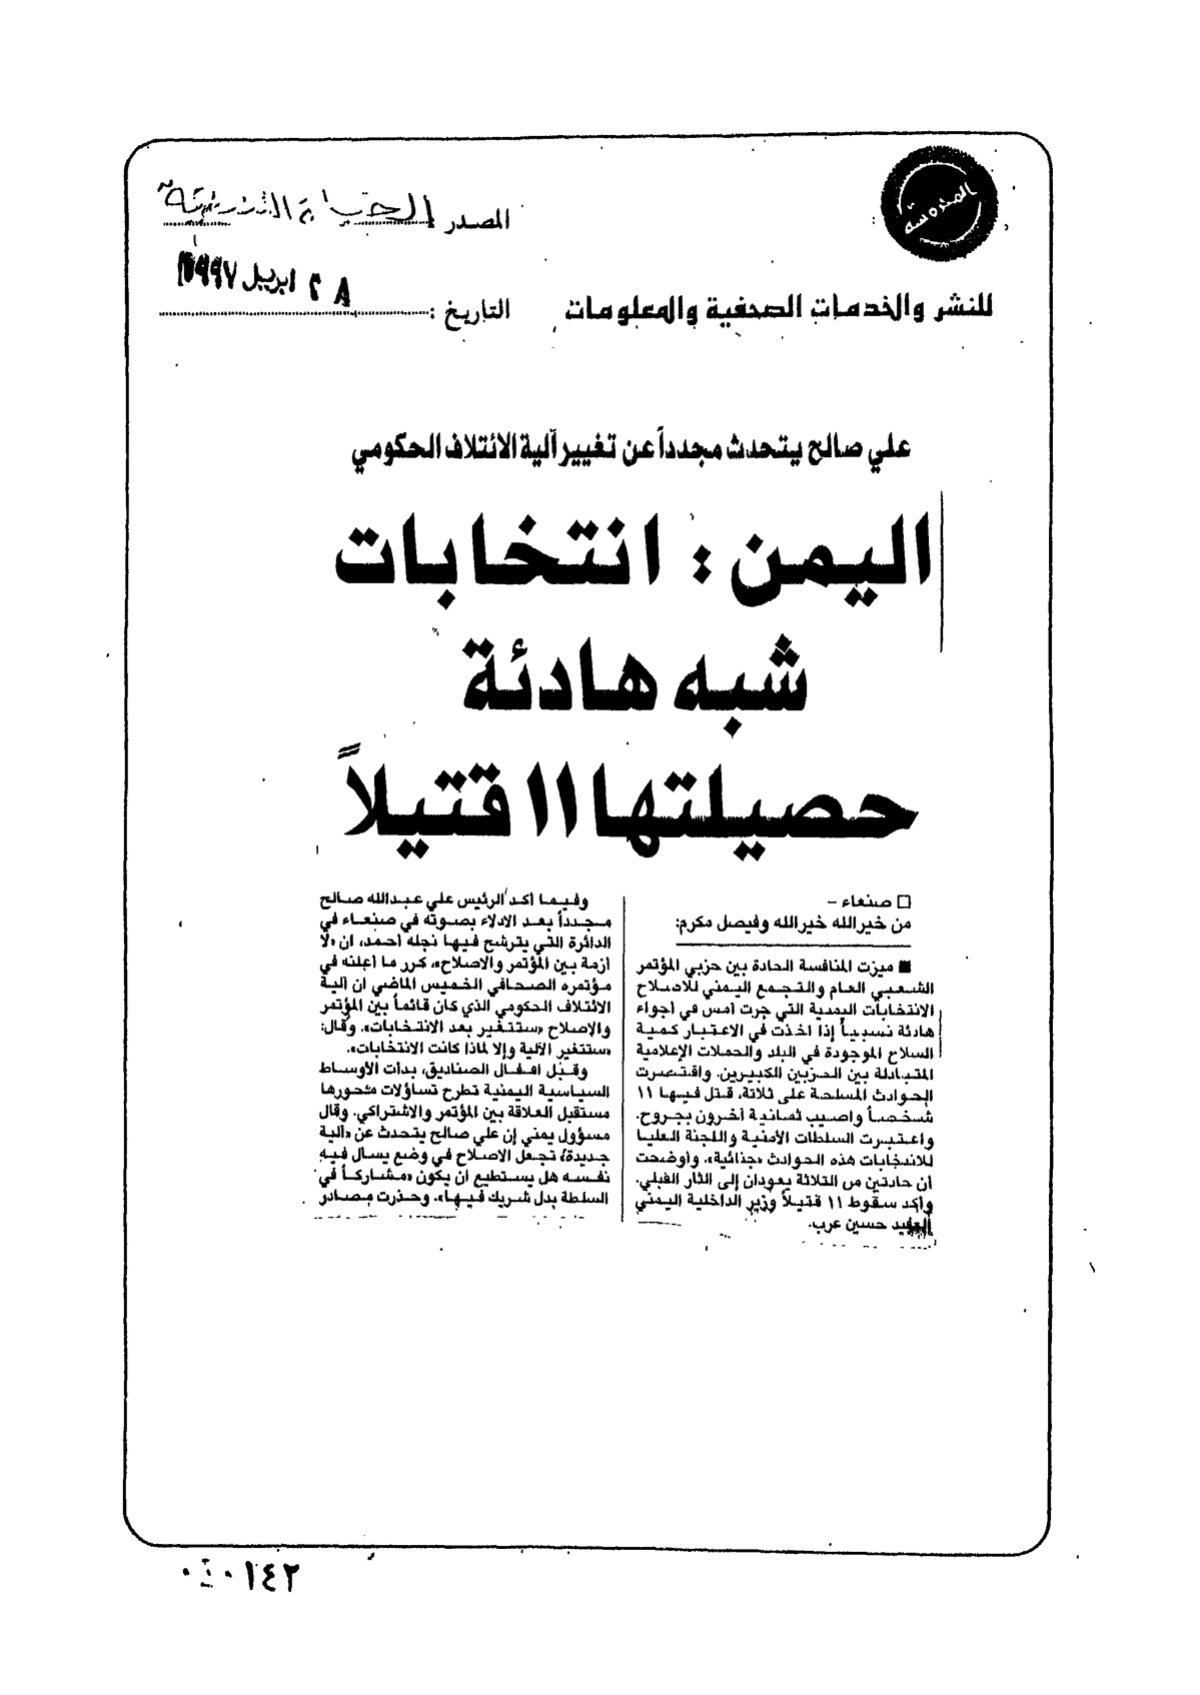 المحروسة
للنشر والخدمات الصحفية والمعلومات
المصدر : الحياة اللندنية
التاريخ : ٢٨ ابريل ١٩٩٧
علي صالح يتحدث مجدداً عن تغيير آلية الائتلاف الحكومي
اليمن : انتخابات
شبه هادئة
حصيلتها ١١ قتيلاً
□ صنعاء –
من خيرالله خيرالله وفيصل مكرم:
■ ميزت المنافسة الحادة بين حزبي المؤتمر
الشعبي العام والتجمع اليمني للاصلاح
الانتخابات اليمنية التي جرت أمس في أجواء
هادئة نسبياً إذا اخذت في الاعتبار كمية
السلاح الموجودة في البلد والحملات الإعلامية
المتبادلة بين الحزبين الكبيرين. واقتصرت
الحوادث المسلحة على ثلاثة، قتل فيها ١١
شخصاً واصيب ثمانية آخرون بجروح.
واعتبرت السلطات الأمنية واللجنة العليا
للانتخابات هذه الحوادث «جنائية». وأوضحت
ان حادثين من الثلاثة يعودان إلى الثأر القبلي.
وأكد سقوط ١١ قتيلاً وزير الداخلية اليمني
العقيد حسين عرب.
وفيما أكد الرئيس علي عبدالله صالح
مجدداً بعد الادلاء بصوته في صنعاء في
الدائرة التي يترشح فيها نجله أحمد، ان «لا
أزمة بين المؤتمر والاصلاح»، كرر ما أعلنه في
مؤتمره الصحافي الخميس الماضي ان آلية
الائتلاف الحكومي الذي كان قائماً بين المؤتمر
والاصلاح «ستتغير بعد الانتخابات». وقال:
«ستتغير الآلية وإلا لماذا كانت الانتخابات».
وقبل اقفال الصناديق، بدأت الأوساط
السياسية اليمنية تطرح تساؤلات محورها
مستقبل العلاقة بين المؤتمر والاشتراكي. وقال
مسؤول يمني إن علي صالح يتحدث عن «آلية
جديدة» تجعل الاصلاح في وضع يسأل فيه
نفسه هل يستطيع ان يكون «مشاركاً في
السلطة بدل شريك فيها». وحذرت مصادر
١٤٢